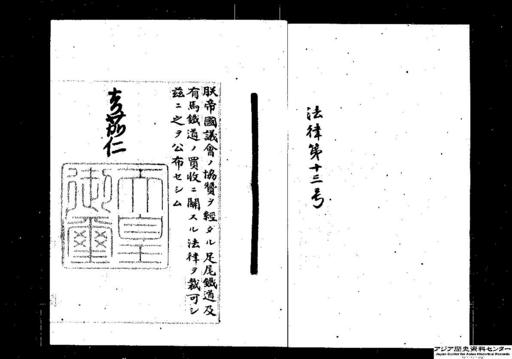 法律第十三号
朕帝國議會ノ協贊ヲ經タル足尾鐵道及
有馬鐵道ノ買收ニ關スル法律ヲ裁可シ
茲ニ之ヲ公布セシム
嘉仁
天皇
御璽
アジア歴史資料センター
Japan Center for Asian Historical Records